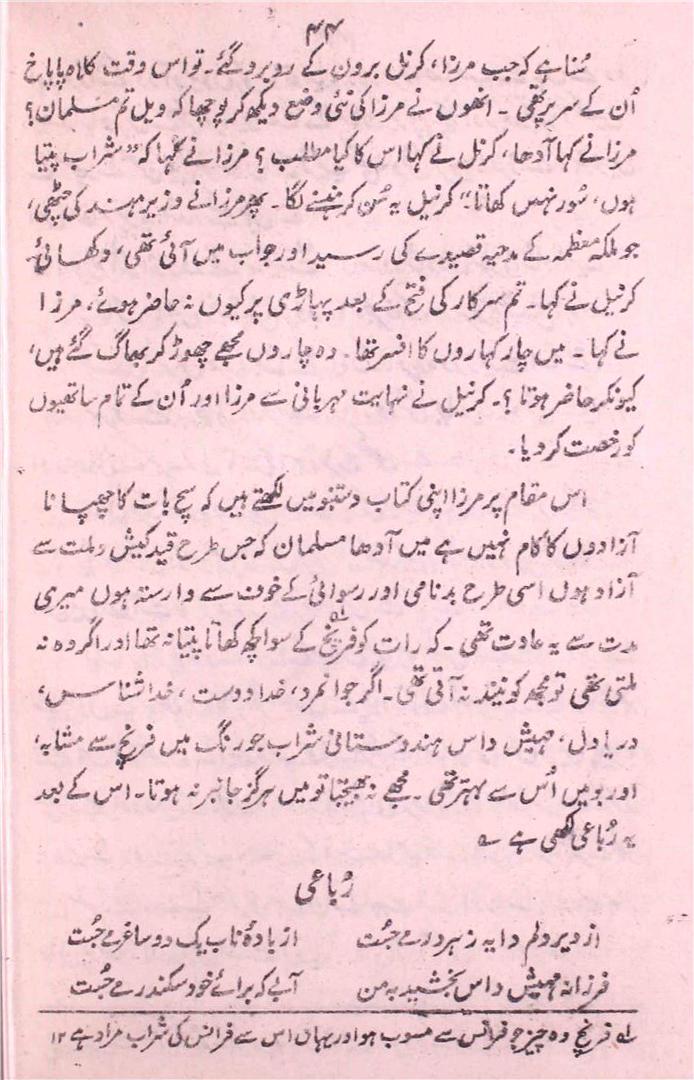 ۴۴
سُنا ہے کہ جب مرزا، کرنل برون کے روبرو گئے۔ تو اس وقت کلاہ پاپاخ
اُن کے سر پر تھی۔ انھوں نے مرزا کی نئی وضع دیکھ کر پوچھا کہ ویل تم مسلمان؟
مرزا نے کہا آدھا، کرنل نے کہا اس کا کیا مطلب؟ مرزا نے کہا کہ "شراب پیتا
ہوں، سُور نہیں کھاتا" کرنیل یہ سُن کر ہنسنے لگا۔ پھر مرزا نے وزیر ہند کی چٹھی،
جو ملکہ معظمہ کے مدحیہ قصیدے کی رسید اور جواب میں آئی تھی، دکھائی۔
کرنیل نے کہا۔ تم سرکار کی فتح کے بعد پہاڑی پر کیوں نہ حاضر ہوئے، مرزا
نے کہا۔ میں چار کہاروں کا افسر تھا۔ وہ چاروں مجھے چھوڑ کر بھاگ گئے ہیں،
کیونکر حاضر ہوتا؟۔ کرنیل نے نہایت مہربانی سے مرزا اور اُن کے تمام ساتھیوں
کو رخصت کر دیا۔
اس مقام پر مرزا اپنی کتاب دستنبو میں لکھتے ہیں کہ سچ بات کا چھپانا
آزادوں کا کام نہیں ہے میں آدھا مسلمان کہ جس طرح قید کیش و ملت سے
آزاد ہوں اسی طرح بدنامی اور رسوائی کے خوف سے وارستہ ہوں میری
مدت سے یہ عادت تھی۔ کہ رات کو فرنچ کے سوا کچھ کھاتا پیتا نہ تھا اور اگر وہ نہ
ملتی تھی تو مجھ کو نیند نہ آتی تھی۔ اگر جوانمرد، خدا دوست، خدا شناس،
دریا دل، مہیش داس ہندوستانی شراب جو رنگ میں فرنچ سے مشابہ،
اور بو میں اُس سے بہتر تھی۔ مجھے نہ بھیجتا تو میں ہرگز جانبر نہ ہوتا۔ اس کے بعد
یہ رُباعی لکھی ہے ؎
رُباعی
از دیر دلم دایہ ز ہر در مے جُست از بادۂ ناب یک دو ساغر مے جُست
فرزانہ مہیش داس بخشید بہ من آبے کہ برائے خود سکندر مے جُست
لہ فرنچ وہ چیز جو فرانس سے منسوب ہو اور یہاں اس سے فرانس کی شراب مراد ہے ۱۲